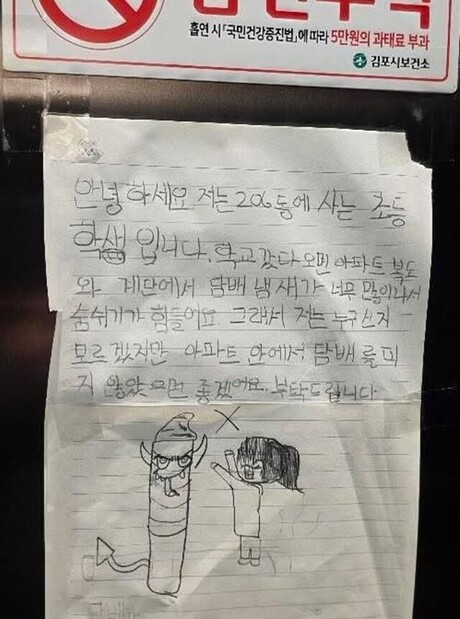 흡연 시 「국민건강증진법」에 따라 5만원의 과태료 부과
김포시보건소
안녕하세요 저는 206동에 사는 초등
학생 입니다. 학교 갔다 오면 아파트 복도
와 계단에서 담배 냄새가 너무 많이나서
숨쉬기가 힘들어요 그래서 저는 누구신지
모르겠지만 아파트 안에서 담배를 피
지 않았으면 좋겠어요. 부탁드립니다